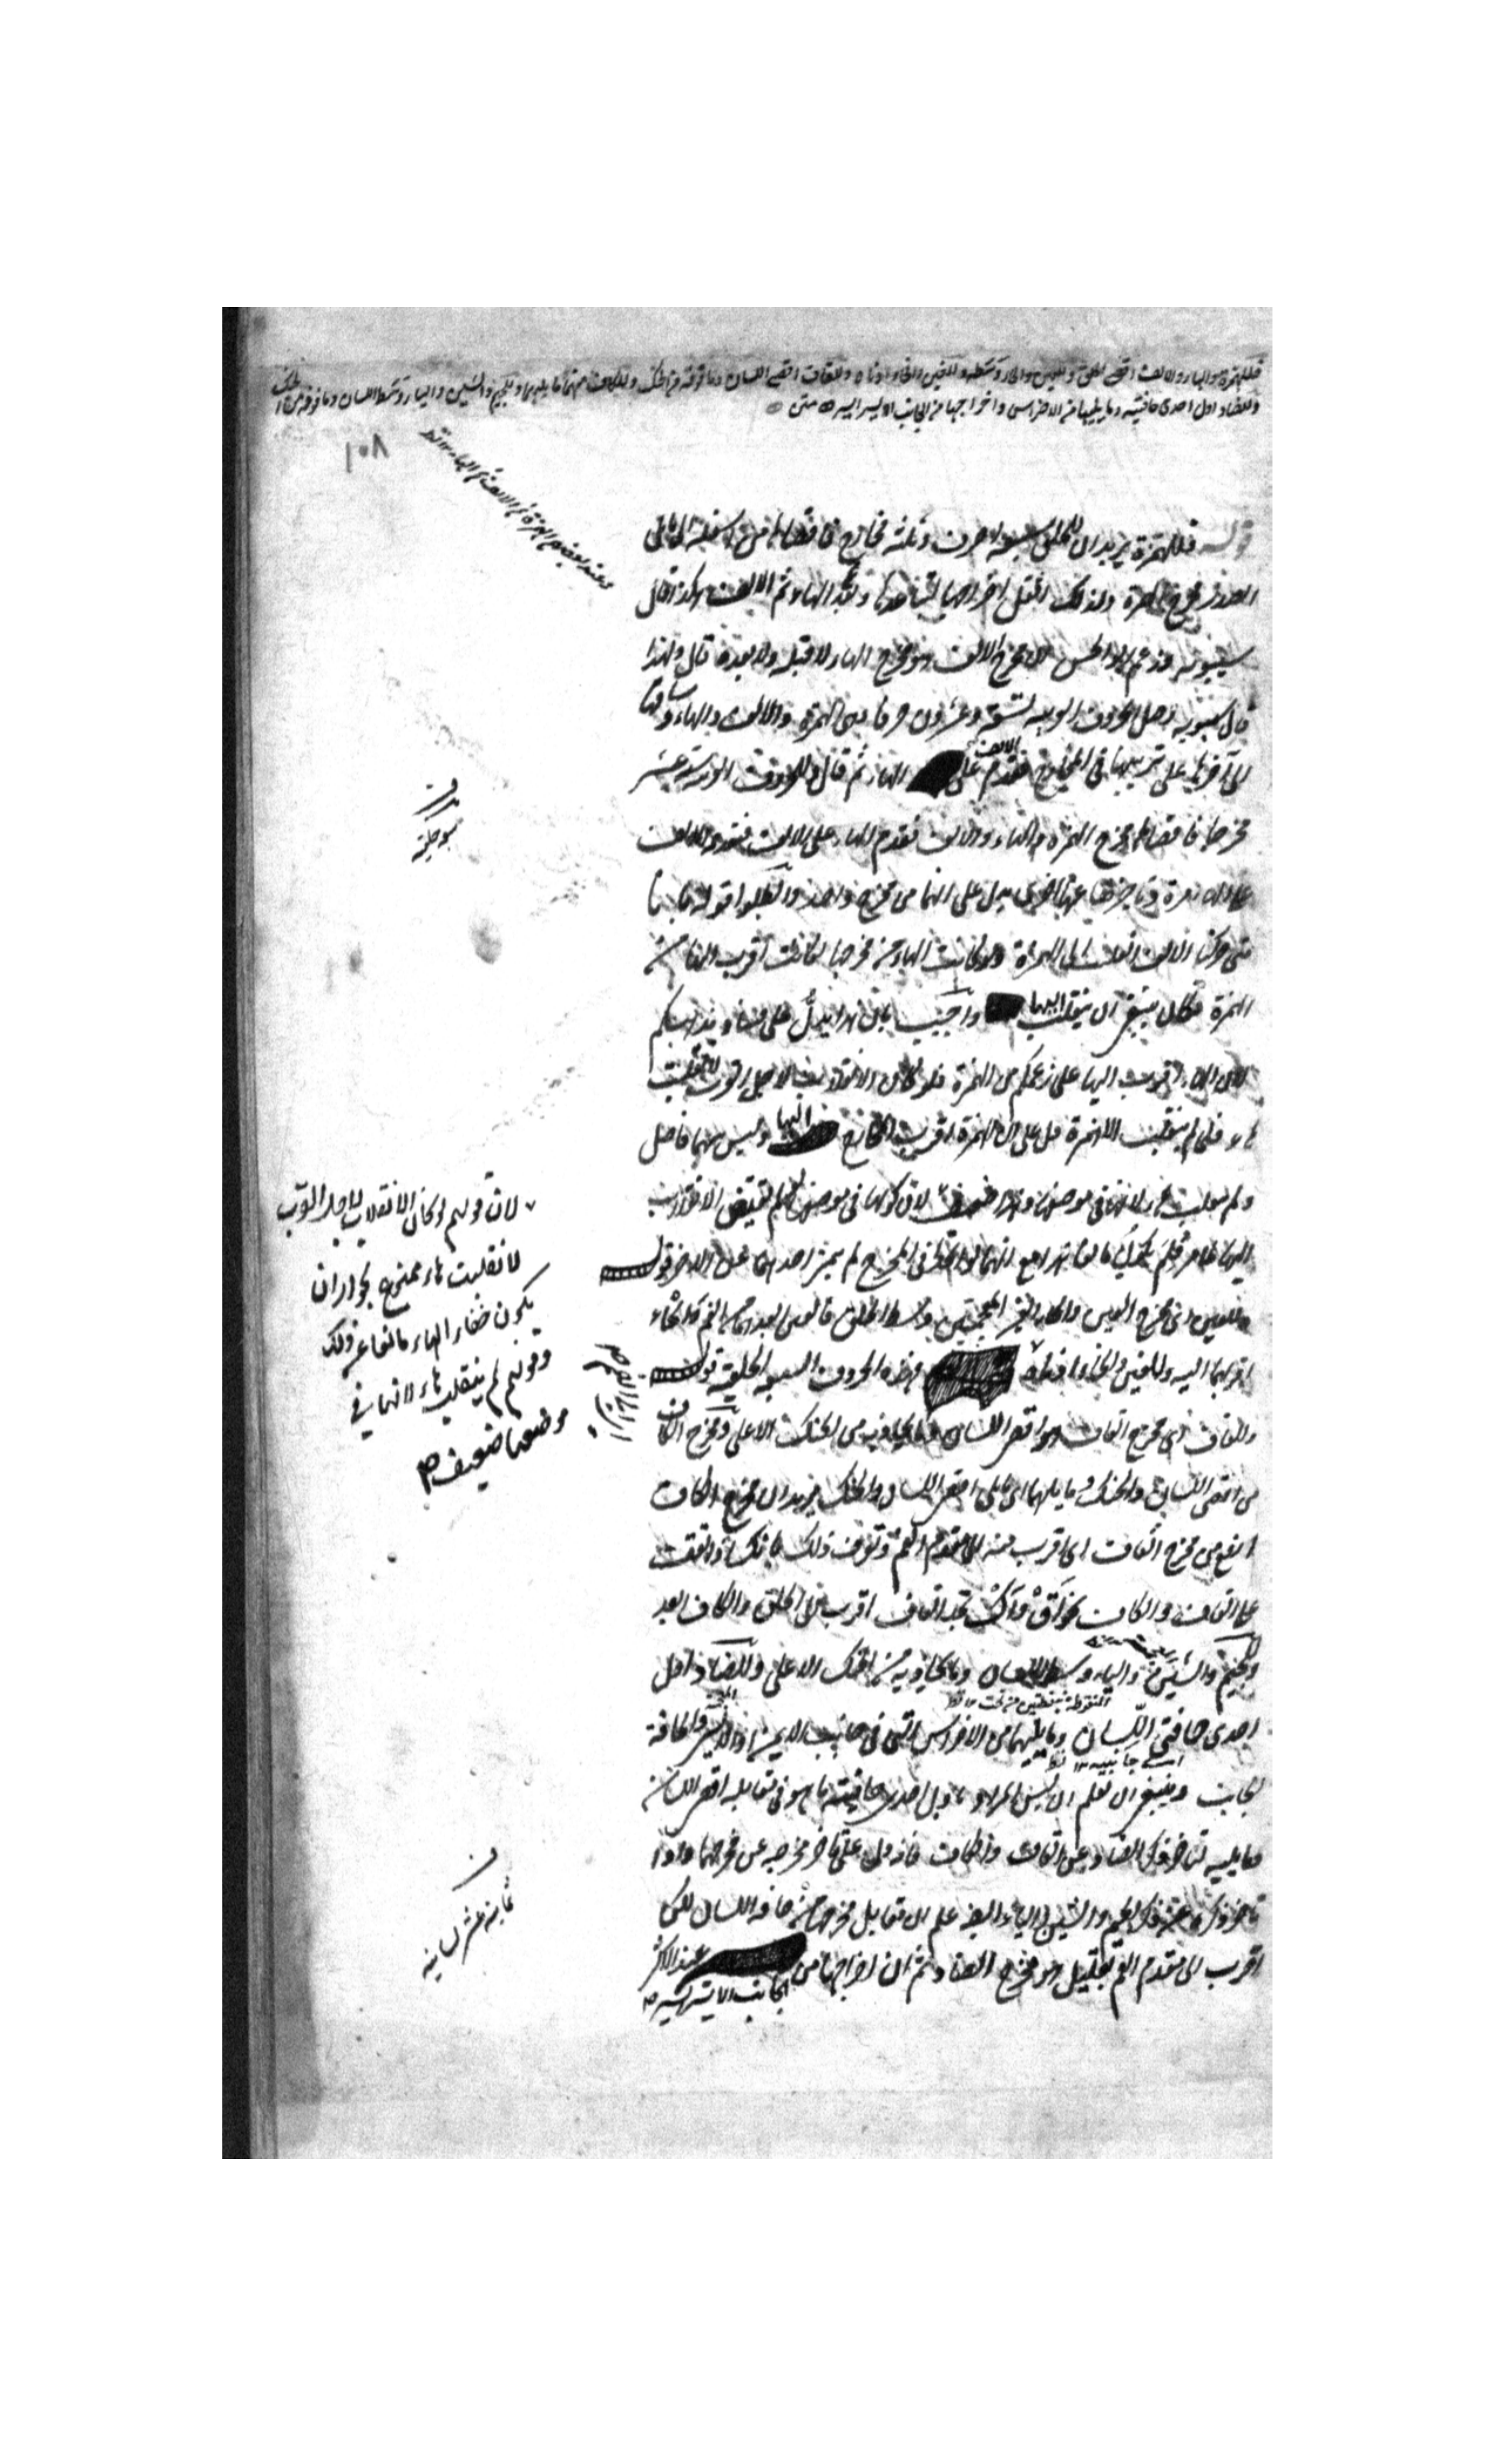 فللهمزة والهاء والالف اقصى الحلق وللعين والحاء وسطه وللغين والخاء ادناه وللقاف اقصى اللسان وما فوقه من الحنك وللكاف منهما ما يليهما وللجيم والشين والياء وسط اللسان وما فوقه من الحنك
وللضاد اول احدى حافتيه وما يليها من الاضراس واخراجها من الجانب الايسر ايسر متن
١٠٨
قوله فللهمزة يريد ان للحلق سبعة احرف وثلثة مخارج فاقصاها من اسفله الى ما يلى
الصدر مخرج الهمزة ولذلك ثقل اخراجها لتباعدها وبعد الهاء ثم الالف هكذا قال
سيبويه وزعم ابو الحسن ان مخرج الالف هو مخرج الهاء لا قبله ولا بعده قال ولهذا
قال سيبويه اصل الحروف العربية تسعة وعشرون حرفا وهى الهمزة والالف والهاء وساقها
الى آخرها على ترتيبها فى المخارج فقدم الالف على الهاء ثم قال وللحروف العربية ستة عشر
مخرجا فاقصاها مخرج الهمزة والهاء والالف فقدم الهاء على الالف فتقديم الالف
على الهاء مرة وتاخيرها عنها اخرى يدل على انهما من مخرج واحد وابطلوا قوله بانا
متى حركنا الالف انقلبت الى الهمزة ولو كانت الهاء من مخرجها لكانت اقرب اليها من
الهمزة فكان ينبغى ان ينقلب اليها واجيب بان هذا يدل على فساد مذهبكم
لان الهاء اقرب اليها على زعمكم من الهمزة فلو كان الانقلاب لاجل القرب لانقلبت
هاء فلما لم ينقلب الا همزة دل على ان الهمزة اقرب المخارج اليها وليس بينهما فاصل
ولم ينقلب هاء لانها فى موضعها وهذا ضعيف لان كونها فى موضعها لم يقتض الاقتراب
قوله
وللعين اى مخرج العين والحاء الغير المعجمتين وسط الحلق فالعين ابعدهما من الفم والحاء
اقربهما اليه وللغين والخاء ادناه فهذه الحروف السبعة الحلقية قوله
وللقاف اى مخرج القاف هو اقصى اللسان وما يحاذيه من الحنك الاعلى ومخرج الكاف
من اقصى اللسان والحنك وما يليهما اى يلى اقصى اللسان والحنك يريد ان مخرج الكاف
ارفع من مخرج القاف اى اقرب منه الى مقدم الفم وتعرف ذلك بانك اذا وقفت
على القاف والكاف نحو اق واك تجد القاف اقرب الى الحلق والكاف ابعد
وللجيم والشين والياء وسط اللسان وما يحاذيه من الحنك الاعلى وللضاد اول
المنقوطة بنقطتين من تحت
احدى حافتى اللسان وما يليها من الاضراس التى فى جانب الايمن او الايسر والحافة
اى جانبيه
الجانب وينبغى ان تعلم ان ليس المراد باول احدى حافتيه ما هو فى مقابلة اقصى اللسان
وما يليه لتاخر ذكر الضاد عن القاف والكاف فانه دل على تاخر مخرجه عن مخرجهما واذا
تاخر ذكره عن ذكر الجيم والشين والياء ايضا علم ان مقابل مخرجها من حافة اللسان لكن
اقرب الى مقدم الفم بقليل هو مخرج الضاد ثم ان اخراجها من
الجانب الايسر ايسر عند الاكثر
لان قولهم لو كان الانقلاب لاجل القرب
لانقلبت هاء ممنوع لجواز ان
يكون خفاء الهاء مانعا عن ذلك
وقولهم لم ينقلب هاء لانها فى
موضعها ضعيف
سبعة حلقية
ثمانية عشر لسانية